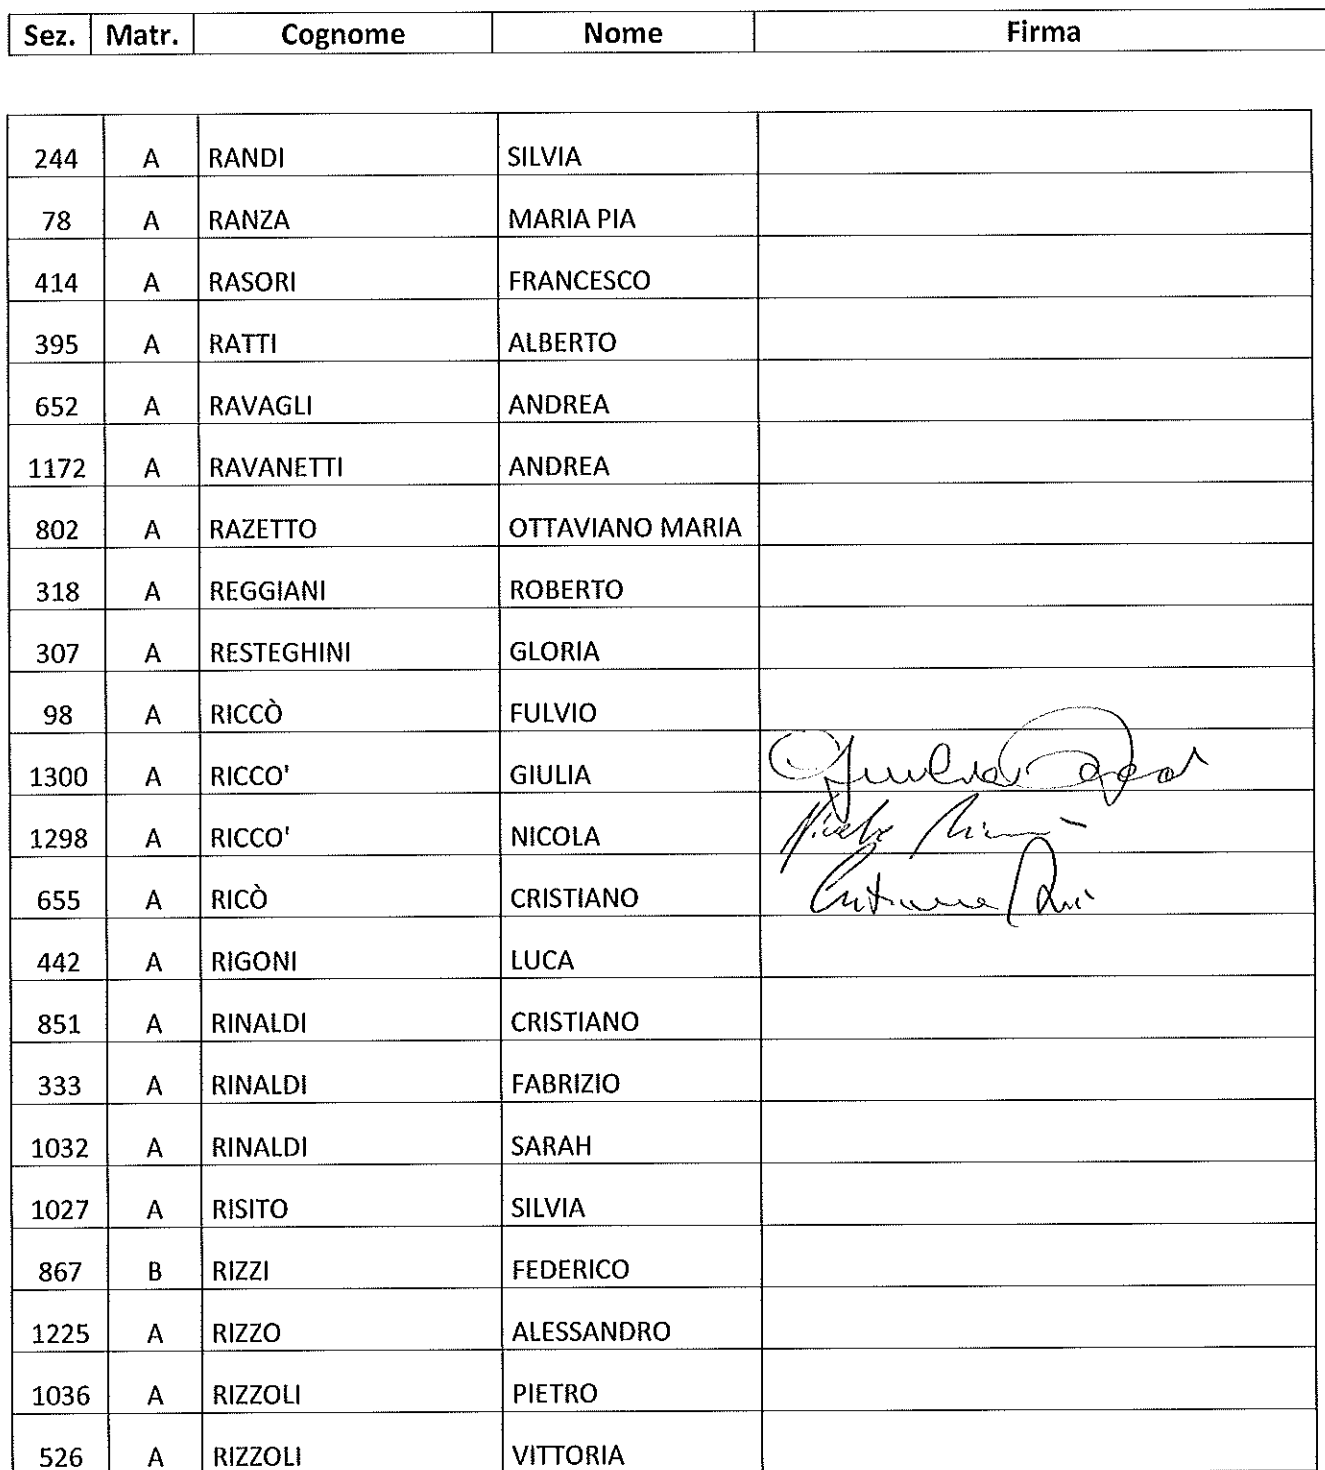 Sez. Matr. Cognome Nome Firma
244 A RANDI SILVIA
78 A RANZA MARIA PIA
414 A RASORI FRANCESCO
395 A RATTI ALBERTO
652 A RAVAGLI ANDREA
1172 A RAVANETTI ANDREA
802 A RAZETTO OTTAVIANO MARIA
318 A REGGIANI ROBERTO
307 A RESTEGHINI GLORIA
98 A RICCÒ FULVIO
1300 A RICCO' GIULIA Giulia
1298 A RICCO' NICOLA Nicola
655 A RICÒ CRISTIANO Cristiano
442 A RIGONI LUCA
851 A RINALDI CRISTIANO
333 A RINALDI FABRIZIO
1032 A RINALDI SARAH
1027 A RISITO SILVIA
867 B RIZZI FEDERICO
1225 A RIZZO ALESSANDRO
1036 A RIZZOLI PIETRO
526 A RIZZOLI VITTORIA